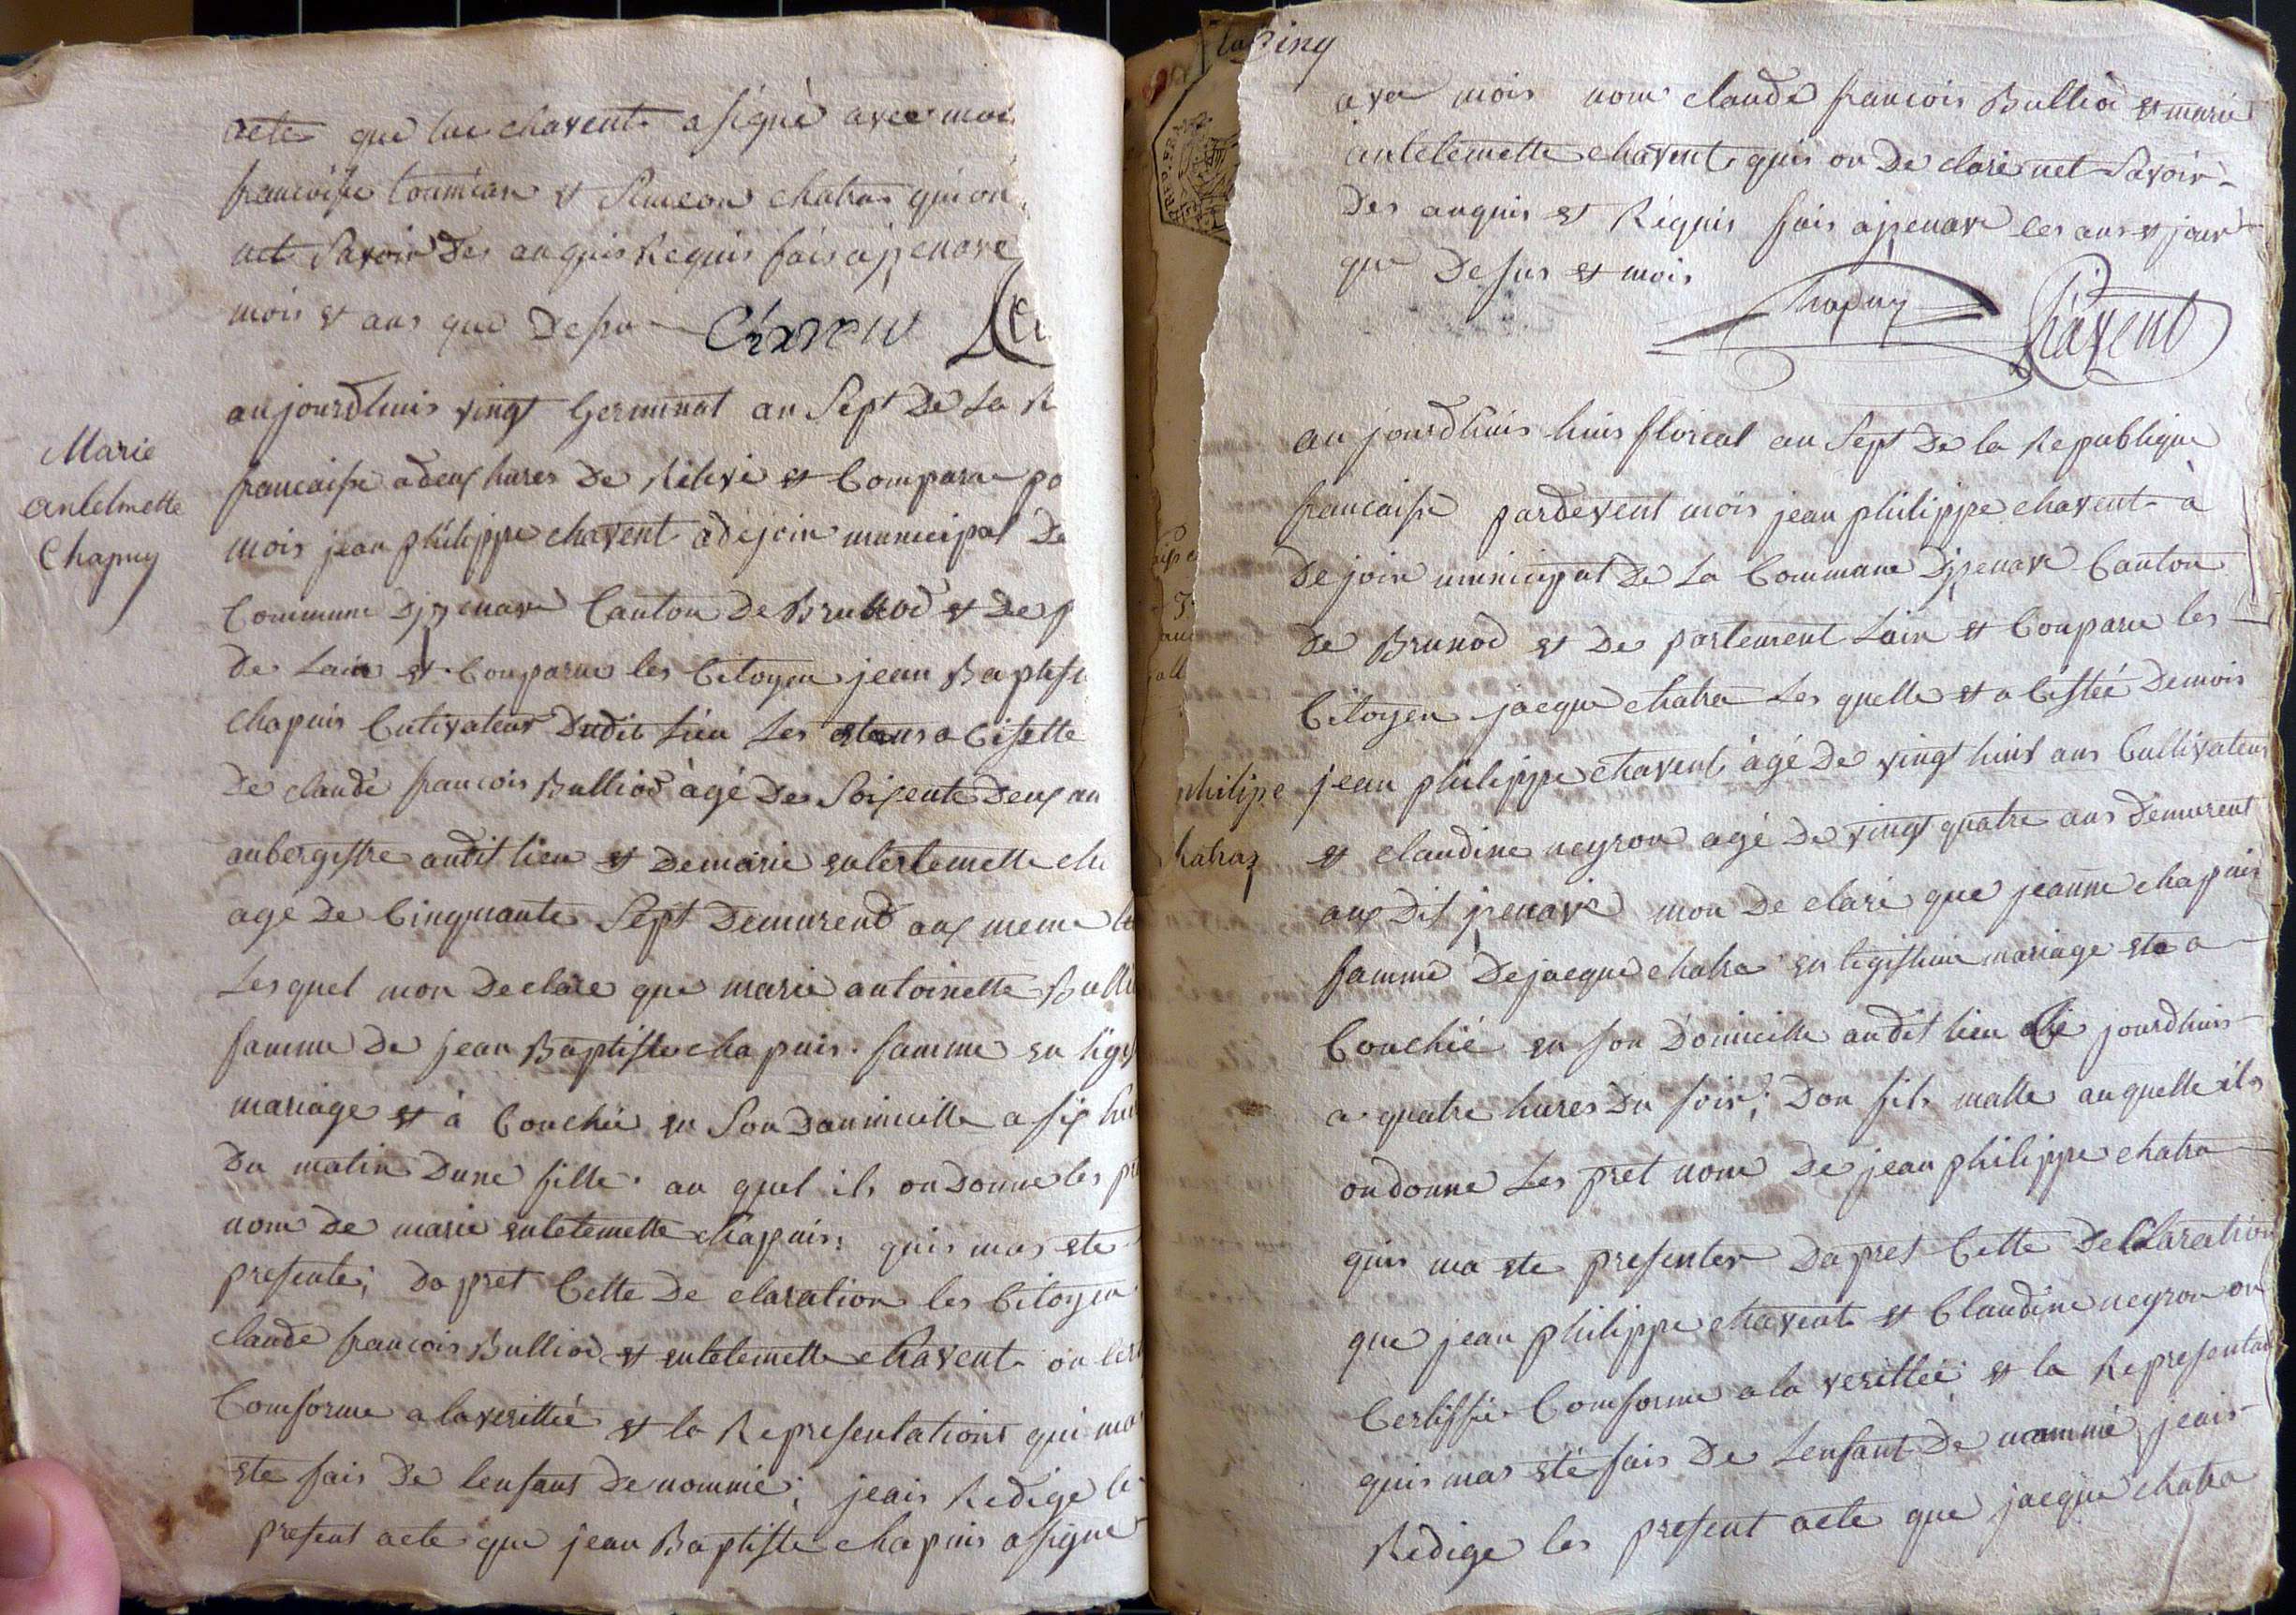 acte que luc chavent a signè avec moi
francoise tournier et Simeon chatras qui on
net Savoir Des anquis Requis fais ajjenave
mois et ans que Desu
Chavent
aujourdhuis vingt Germinat an Sept De La R
Marie
Antelmette
Chapuy
francaise a deux hures De Rèlevè et Comparu po
mois jean philippe chavent adejoin municipal De
Commune Djjenave Canton De Brunod et De p
de Lain et Comparu les Citoyen jean Baptiste
Chapuis Cultivateur Dudit Lieu Les etans a Cisette
De claude francois Bulliod àgé De Soixente Deux an
aubergistre audit lieu et De marie antertemette cha
agé De Cinquante Sept Demurend aux meme
Lesquel mon Declare que marie antoinette Bulli
famme De jean Baptiste chapuis famme en ligis
mariage et à Couchée en Son Dommicille a six hu
Du matin Dune fille au quel ils on Donne les p
nom De marie entetemette Chapuis quis mas ete
presente; Da pret Cette De claration les Citoyen
claude francois Bulliod et entetemette Chavent on
Comforme a laverittée et la Representations qui ma
ete fais De lenfant Denommé; jeais Redige le
present acte que jean Baptiste chapuis a signe
avec mois nom claude francois Bulliod et marie
antetemette chavent quis on De clare net Savoir
Des anquis et Rèquis fais ajjenave les ans et jour
que Desus et mois
Chapuy
Chavent
au jourdhuis huis floreal an Sept De la Republique
francaise pardevent mois jean philippe chavent à
De join municipal De La Commune Djjenave Canton
De Brunod et De partement Lain et Comparu les
Citoyen jacque chatra Les quelle et a Cistée Demois
philipe
hatraz
jean philippe chavent àgé De vingt huis ans Cultivateur
et claudine neyron agé De vingt quatre ans Demurent
aux Dit jjenave mon De claré que jeanne chapuis
famme De jacque chatra en legistime mariage ete a
Couchée en son Domicille audit lieu jourdhuis
a quatre hures Du soir; Don fils malle auquelle ils
on donne Les pret nom De jean philippe chatra
quis ma ete presenter Dapret Cette Declaration
que jean philippe chavent et Claudine neyron on
Certiffie Comforme a la verittée et la Representat
quis mas été fais De Lenfant De nommé jeais
Redige les present acte que jacque chatra